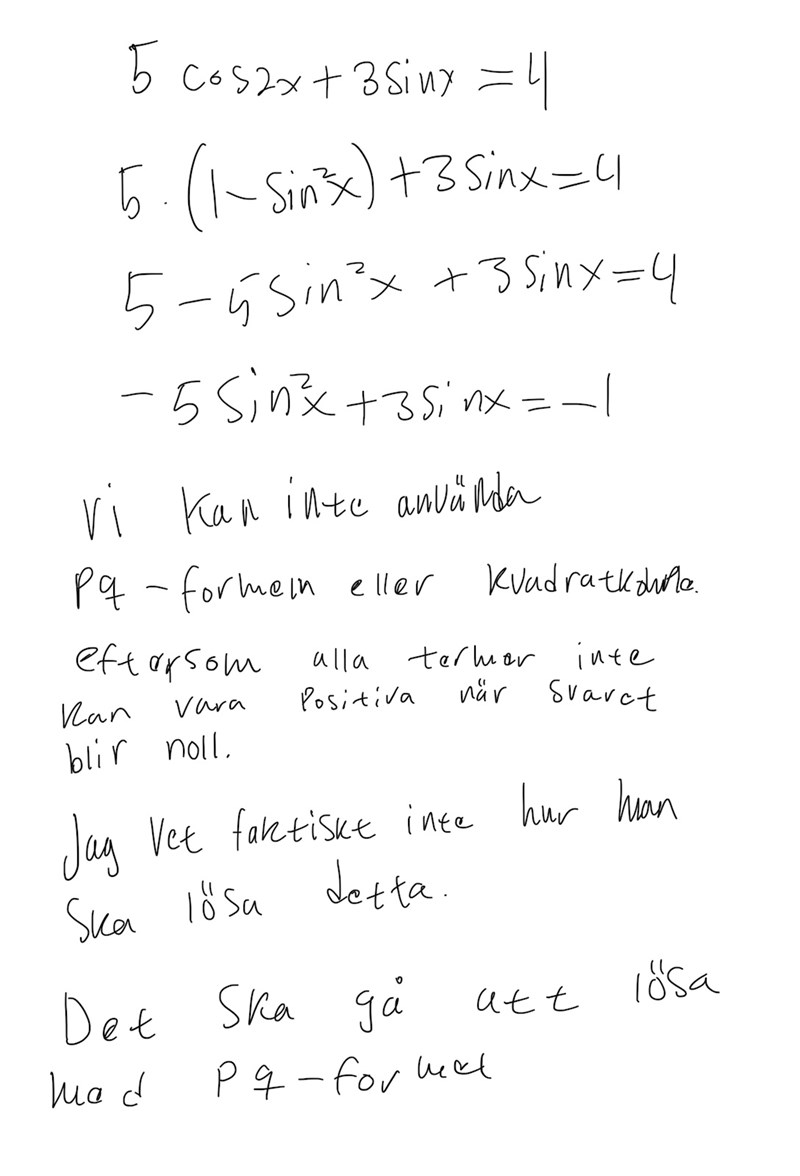 5 cos2x + 3sinx = 4
5 · (1 - sin²x) + 3sinx = 4
5 - 5sin²x + 3sinx = 4
- 5sin²x + 3sinx = -1
Vi kan inte använda
Pq - formeln eller
eftersom alla termer inte
kan vara positiva när svaret
blir noll.
Jag Vet faktiskt inte hur man
Ska lösa detta.
Det Ska gå att lösa
med Pq - formel